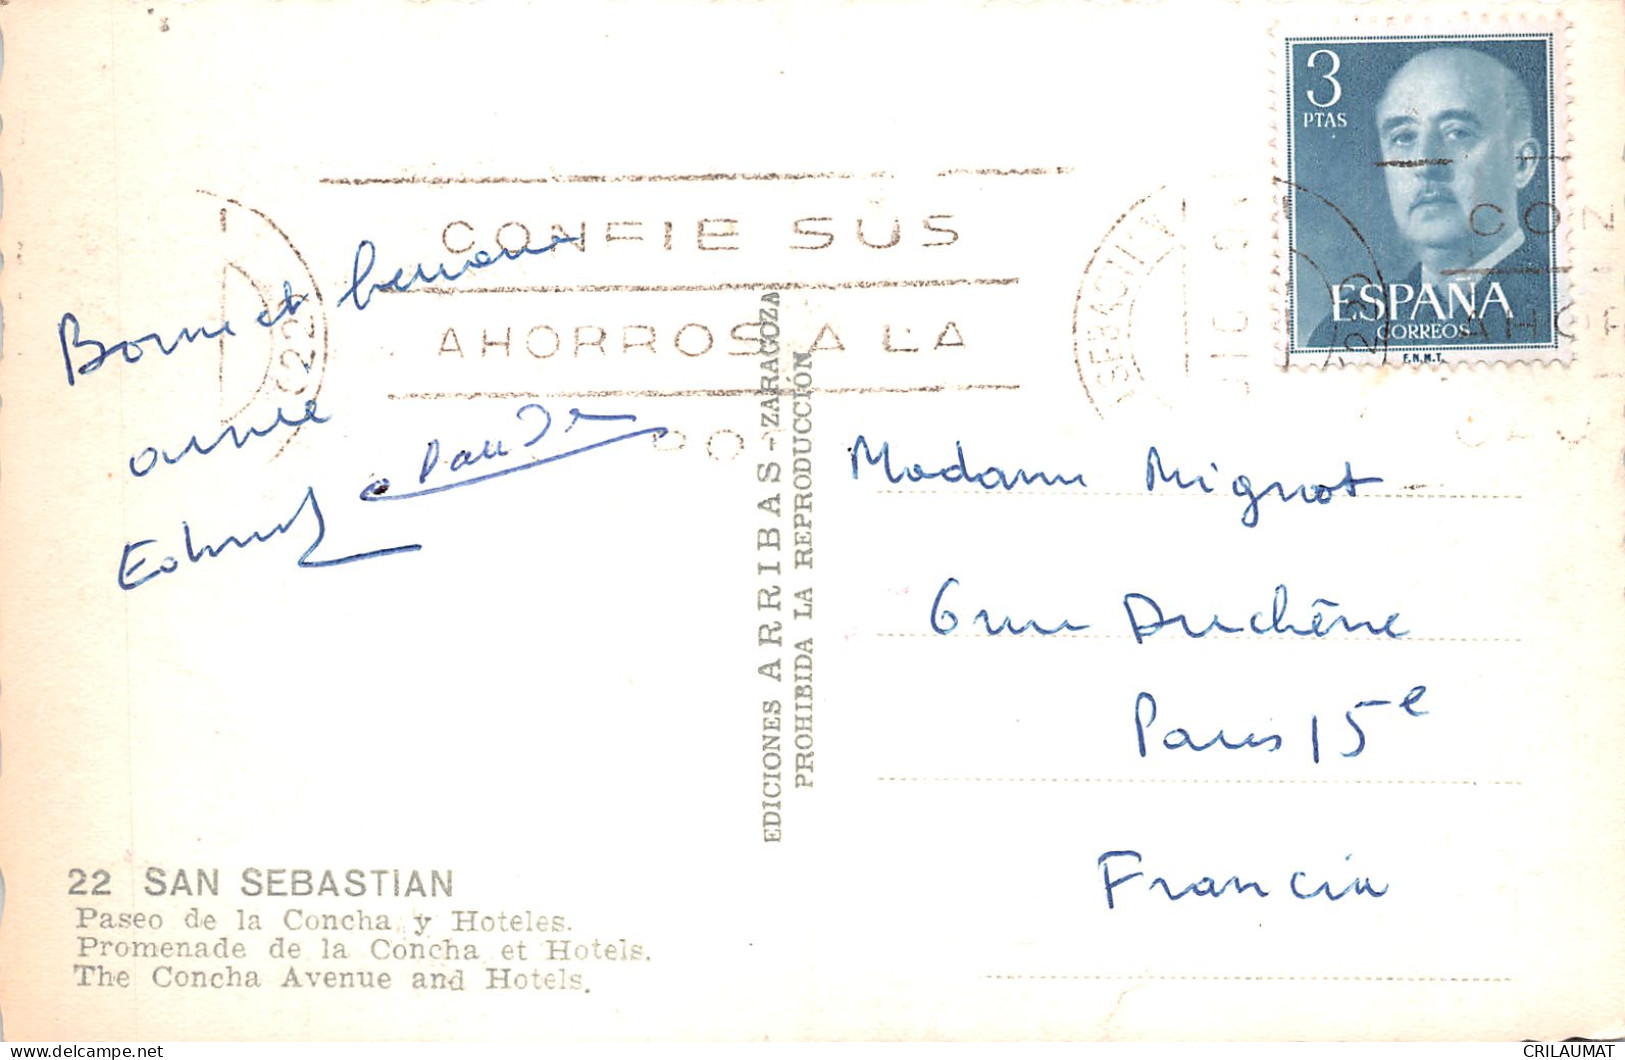 3
PTAS
ESPAÑA
CORREOS
F.N.M.T.
CONFIE SUS
AHORROS A LA
CON
AHOR
Bonne et heureuse
année
Edmond
EDICIONES ARRIBAS - ZARAGOZA
PROHIBIDA LA REPRODUCCIÓN
Madame Mignot
6 rue Duchêne
Paris 15e
Francia
22 SAN SEBASTIAN
Paseo de la Concha y Hoteles.
Promenade de la Concha et Hotels.
The Concha Avenue and Hotels.
CRILAUMAT